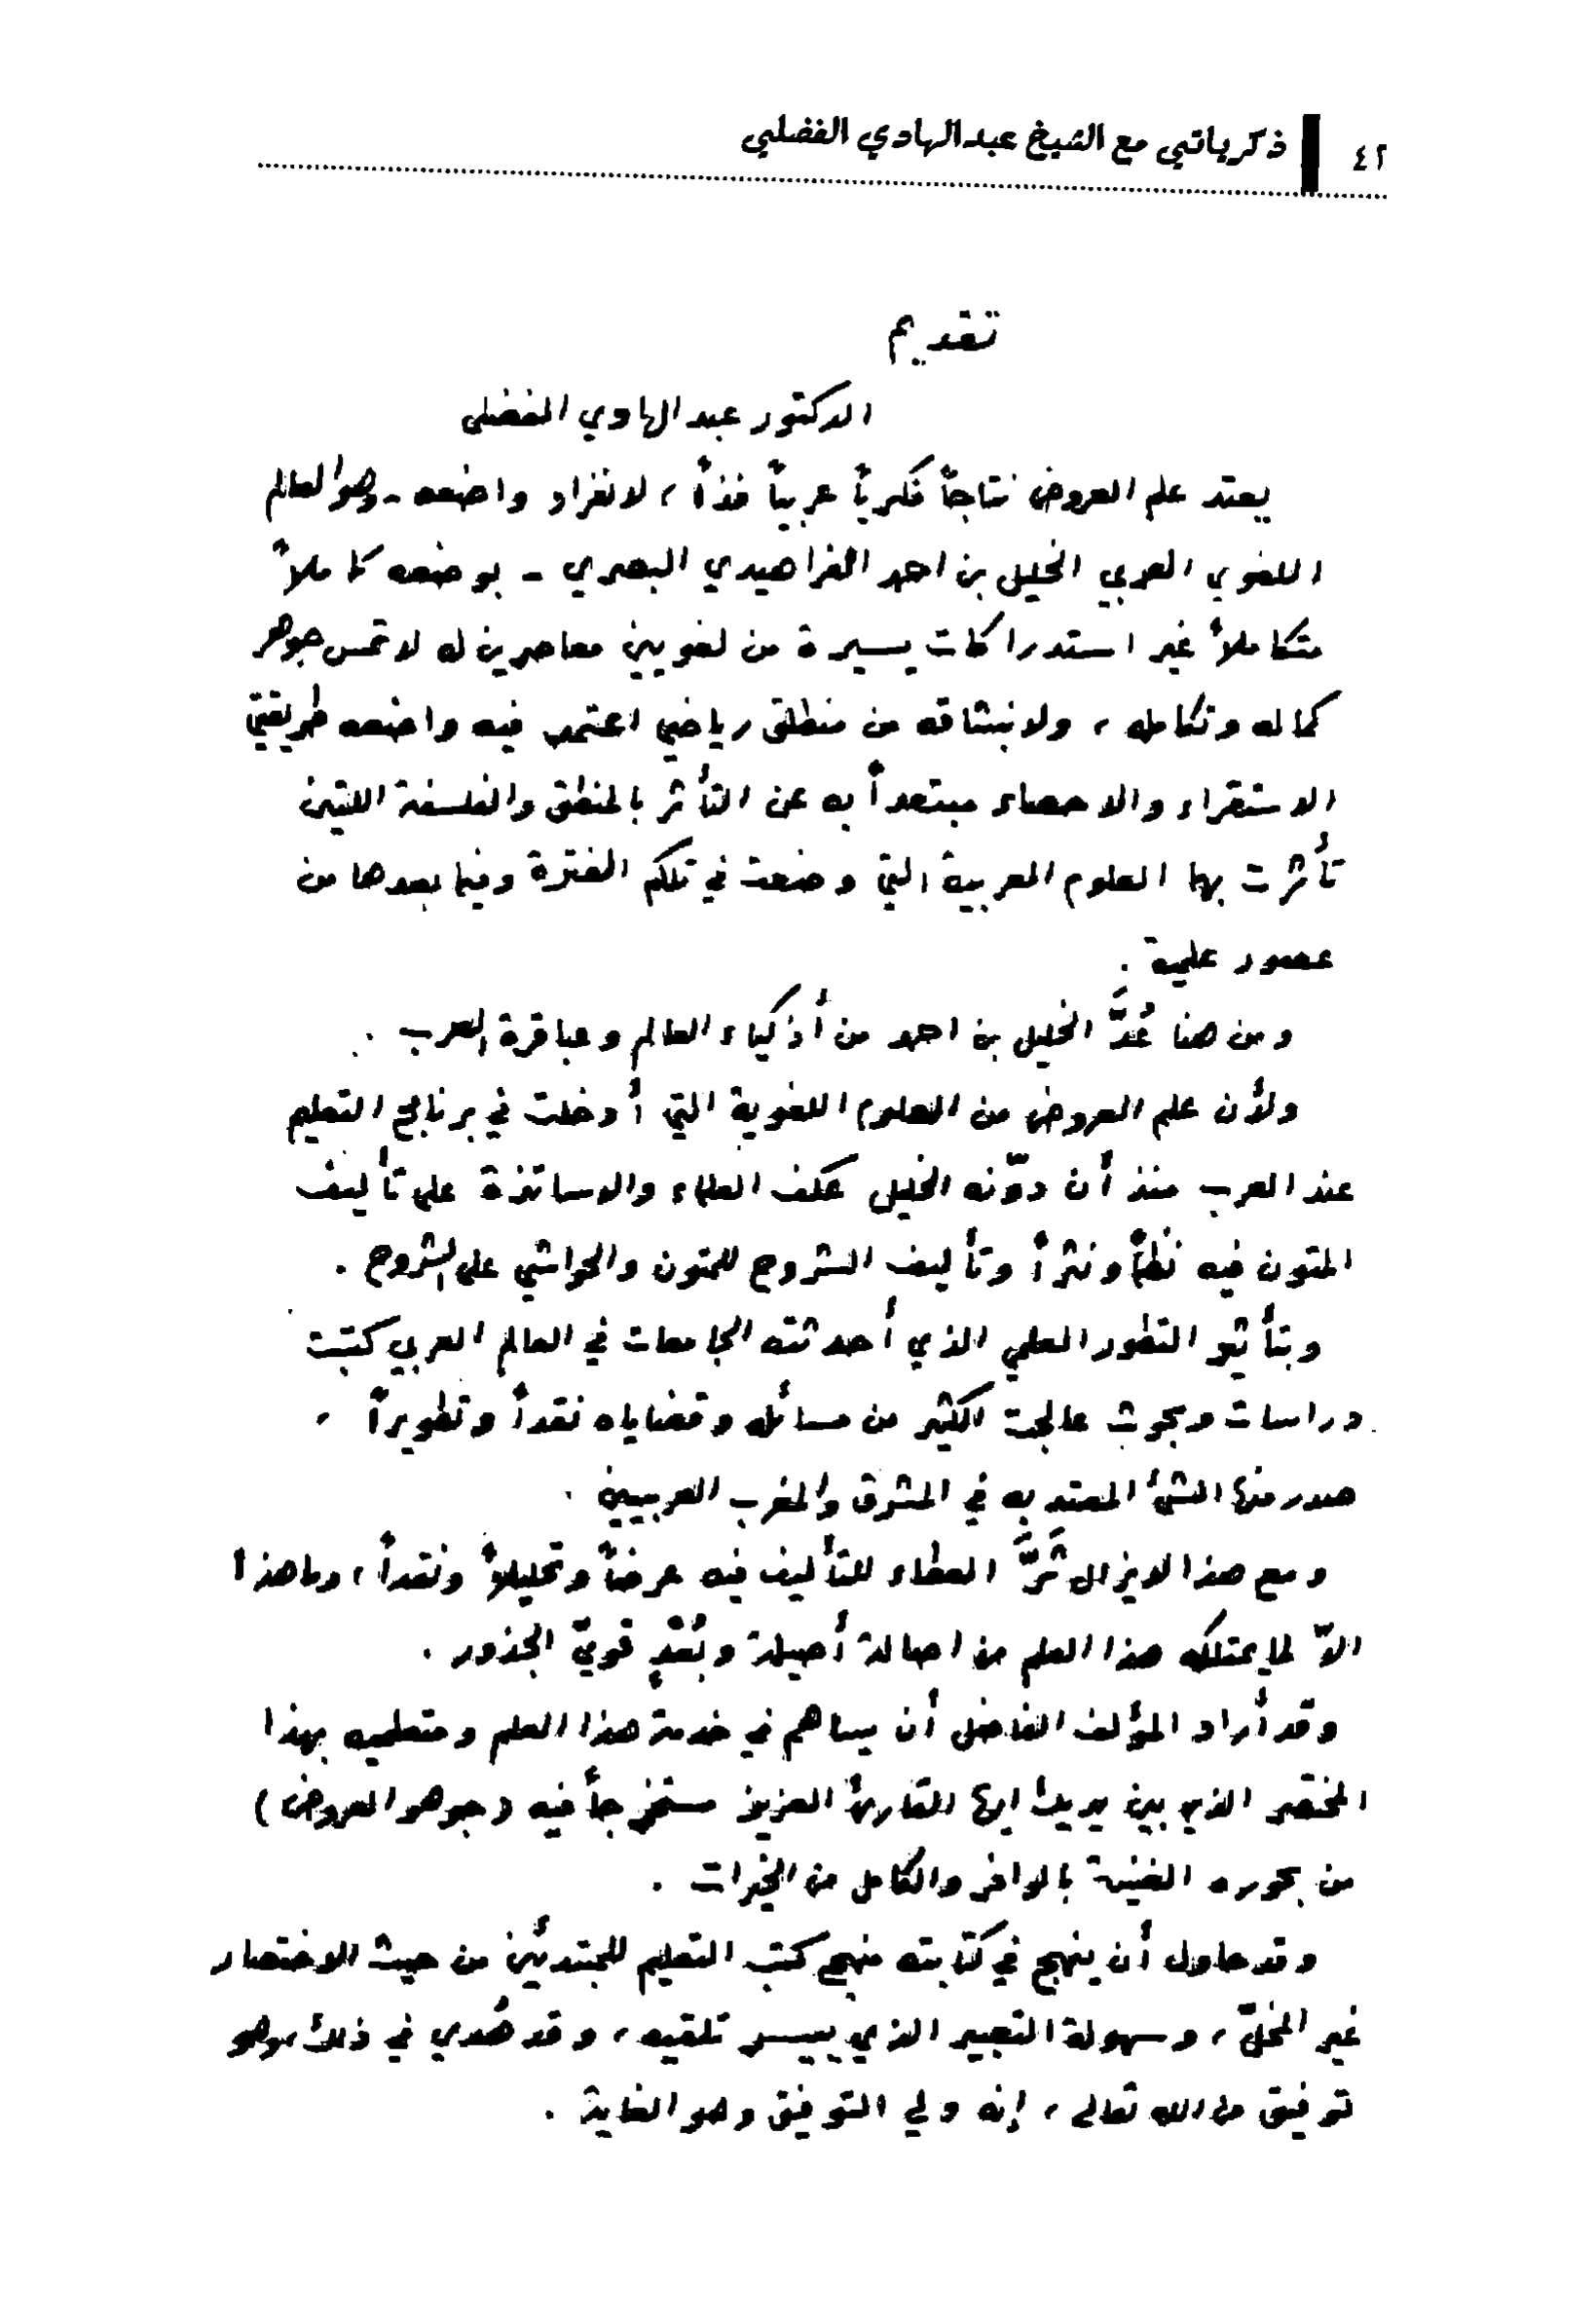 ٤٢ ذكرياتي مع الشيخ عبدالهادي الفضلي
تقديم
الدكتور عبد الهادي الفضلي
يعتد علم العروض نتاجاً فكرياً عربياً فذاً ، لانفراد واضعه - وهو العالم
اللغوي العربي الخليل بن احمد الفراهيدي البصري - بوضعه كاملاً
متكاملاً غير استدراكات يسيرة من لغويين معاصرين له لا تمس جوهر
كماله وتكامله ، ولانبثاقه من منطلق رياضي اعتمد فيه واضعه طريقتي
الاستقراء والاحصاء مبتعداً به عن التأثر بالمنطق والفلسفة اللتين
تأثرت بهما العلوم العربية التي وضعت في تلكم الفترة وفيما بعدها من
عصور علمية .
ومن هنا عُدَّ الخليل بن احمد من أذكياء العالم وعباقرة العرب .
ولأن علم العروض من العلوم اللغوية التي أدخلت في برنامج التعليم
عند العرب منذ أن دوّنه الخليل عكف العلماء والاساتذة على تأليف
المتون فيه نظماً ونثراً وتأليف الشروح للمتون والحواشي على الشروح .
وبتأثير التطور العلمي الذي أحدثته الجامعات في العالم العربي كتبت
دراسات وبحوث عالجت الكثير من مسائله وقضاياه نقداً وتطويراً ،
صدر منها الشيء المعتد به في المشرق والمغرب العربيين .
ومع هذا لا يزال ثَرَّ العطاء للتأليف فيه عرضاً وتحليلاً ونقداً ، وما هذا
الاّ لما يمتلك هذا العلم من اصالة أصيلة وبُعْدٍ قويّ الجذور .
وقد أراد المؤلف الفاضل أن يساهم في خدمة هذا العلم ومتعلميه بهذا
المختصر الذي بين يديك ايها القارئ العزيز مستخرجاً فيه (جوهر العروض)
من بحوره الغنية بالوافر والكامل من الخيرات .
وقد حاول أن ينهج في كتابته منهج كتب التعليم للمبتدئين من حيث الاختصار
غير المخلّ ، وسهولة التعبير الذي ييسر تلقيه ، وقد هُدي في ذلك ، وهو
توفيق من الله تعالى ، إنه ولي التوفيق وهو الغاية .